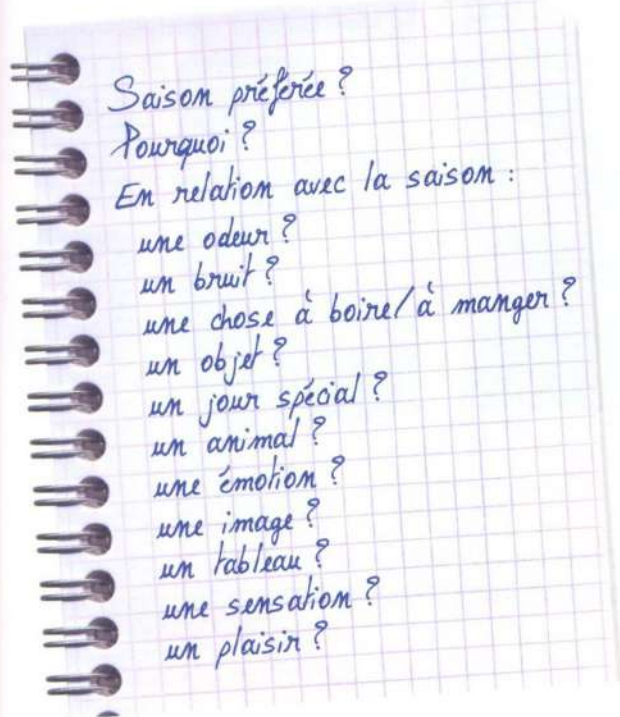 Saison préférée ?
Pourquoi ?
En relation avec la saison :
une odeur ?
un bruit ?
une chose à boire/à manger ?
un objet ?
un jour spécial ?
un animal ?
une émotion ?
une image ?
un tableau ?
une sensation ?
un plaisir ?